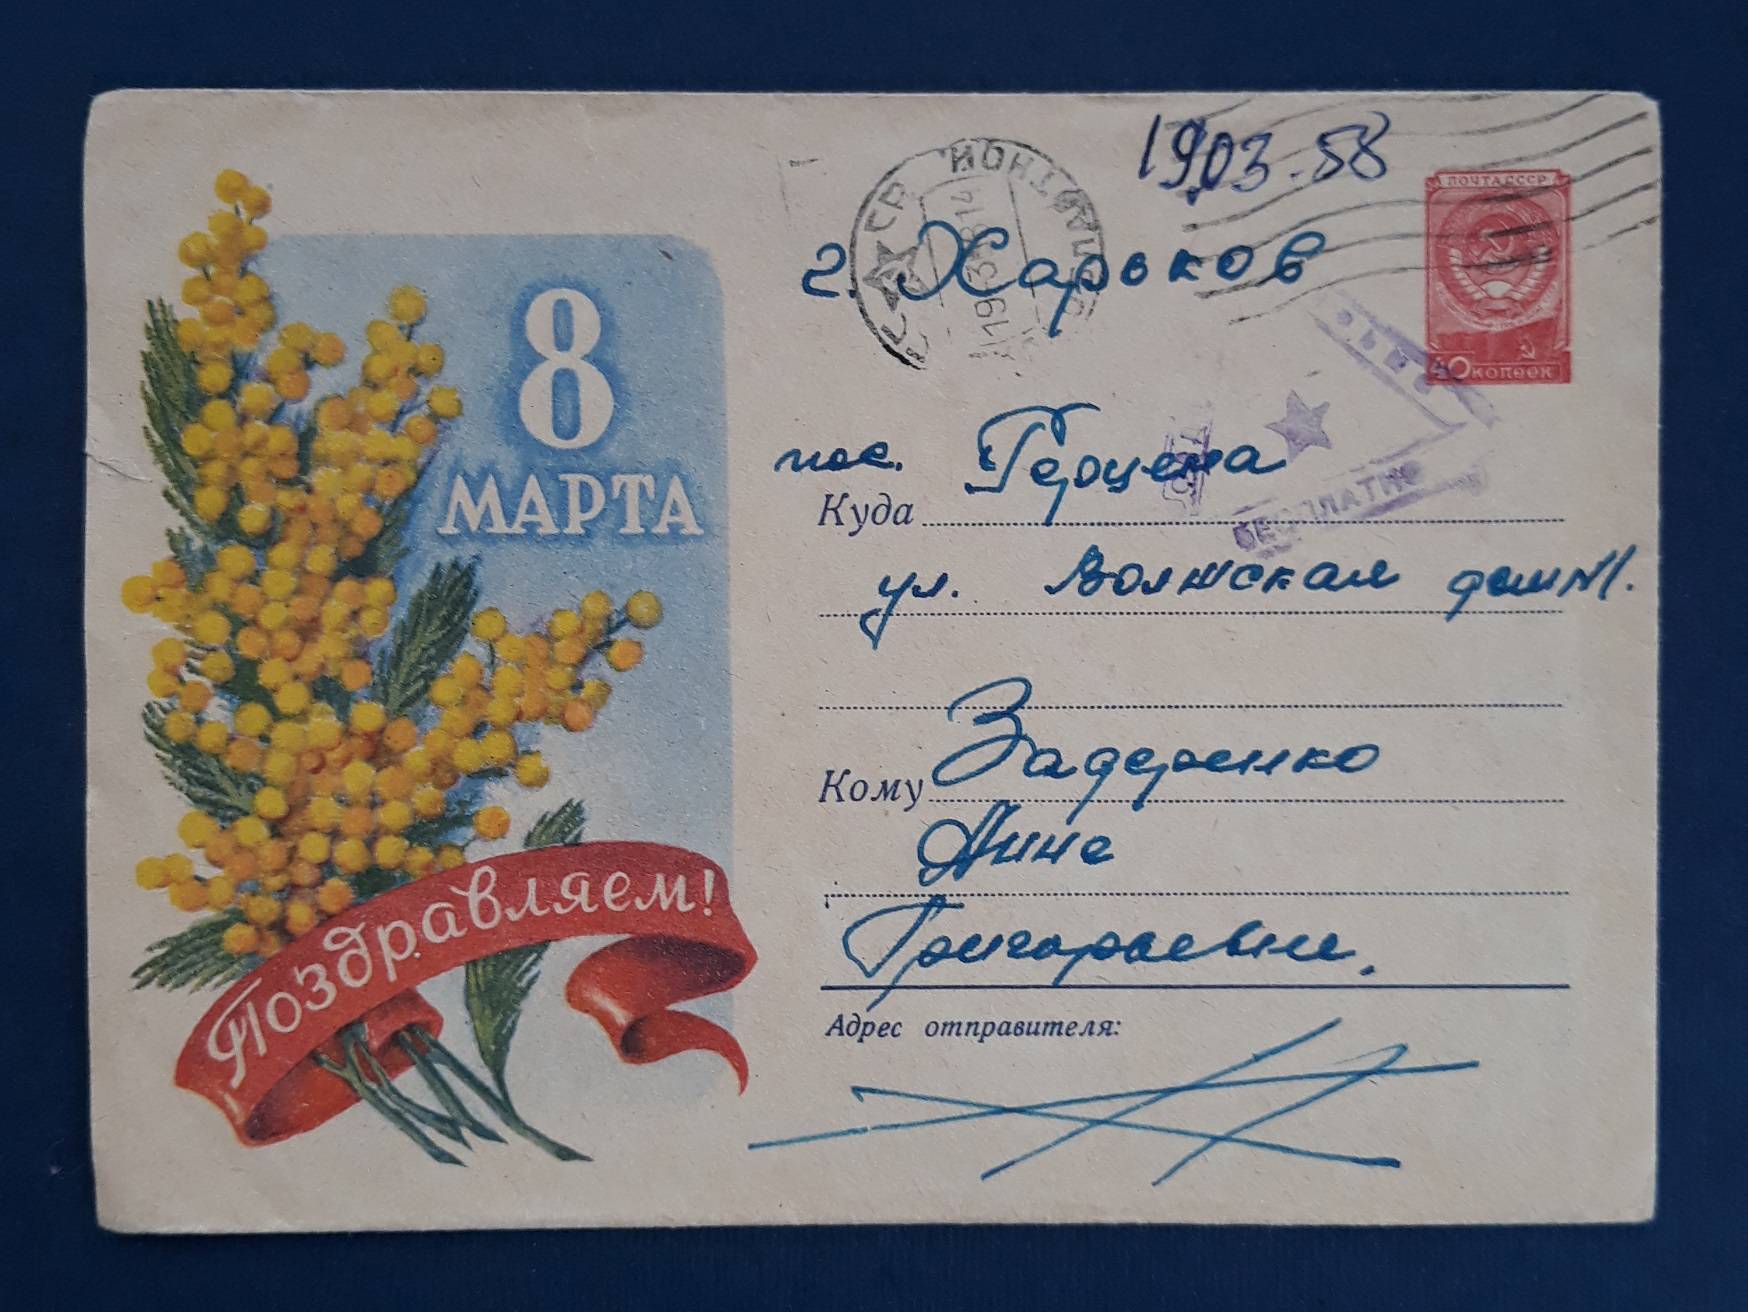 19.03.58
ПОЧТА СССР
40 КОПЕЕК
г. Харьков
8
МАРТА
пос. Герцена
Куда
БЕСПЛАТНО
ул. Волжская дом №1.
Кому Задеренко
Анне
Григорьевне.
Поздравляем!
Адрес отправителя: